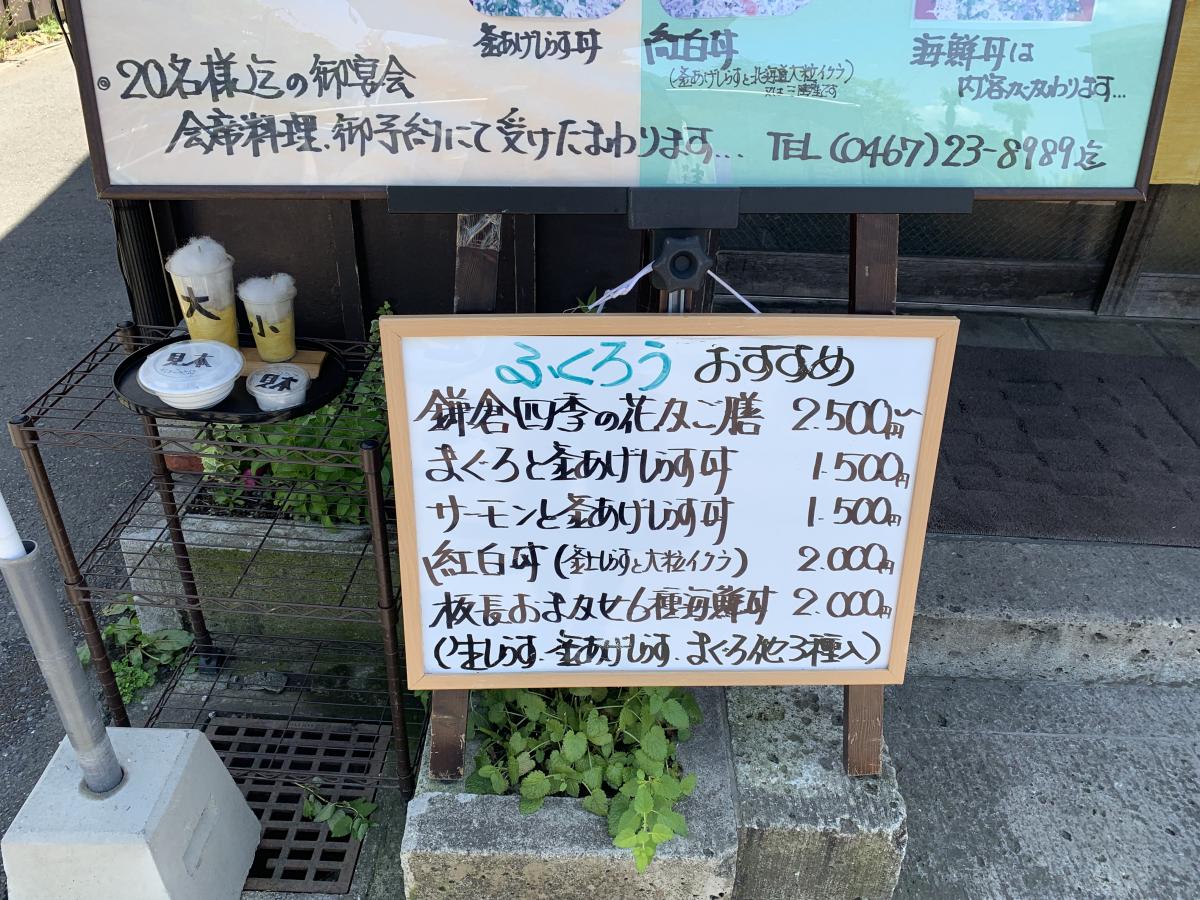 釜あげしらす丼
紅白丼
(釜あげしらすと北海道大粒イクラ)
海鮮丼は
内容かわります…
◎20名様迄の御宴会
会席料理、御予約にて受けたまわります… TEL (0467)23-8989迄
大
小
見本
見本
ふくろう おすすめ
鎌倉四季の花かご膳 2.500円〜
まぐろと釜あげしらす丼 1.500円
サーモンと釜あげしらす丼 1.500円
紅白丼(釜上しらすと大粒イクラ) 2.000円
板長おまかせ6種海鮮丼 2.000円
(生しらす、釜あげしらす、まぐろ他3種入)